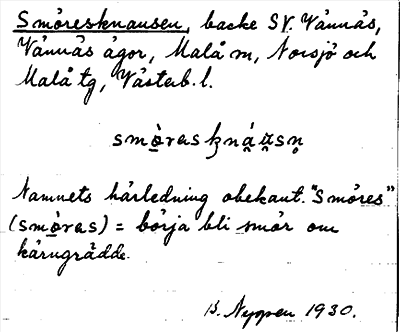 Smöresknausen, backe SV. Vännäs,
Vännäs ägor, Malå m, Norsjö och
Malå tg, Västerb. l.
Namnets härledning obekant. "Smöres"
(smö̀ras) = börja bli smör om
kärngrädde.
B. Nyppen 1930.